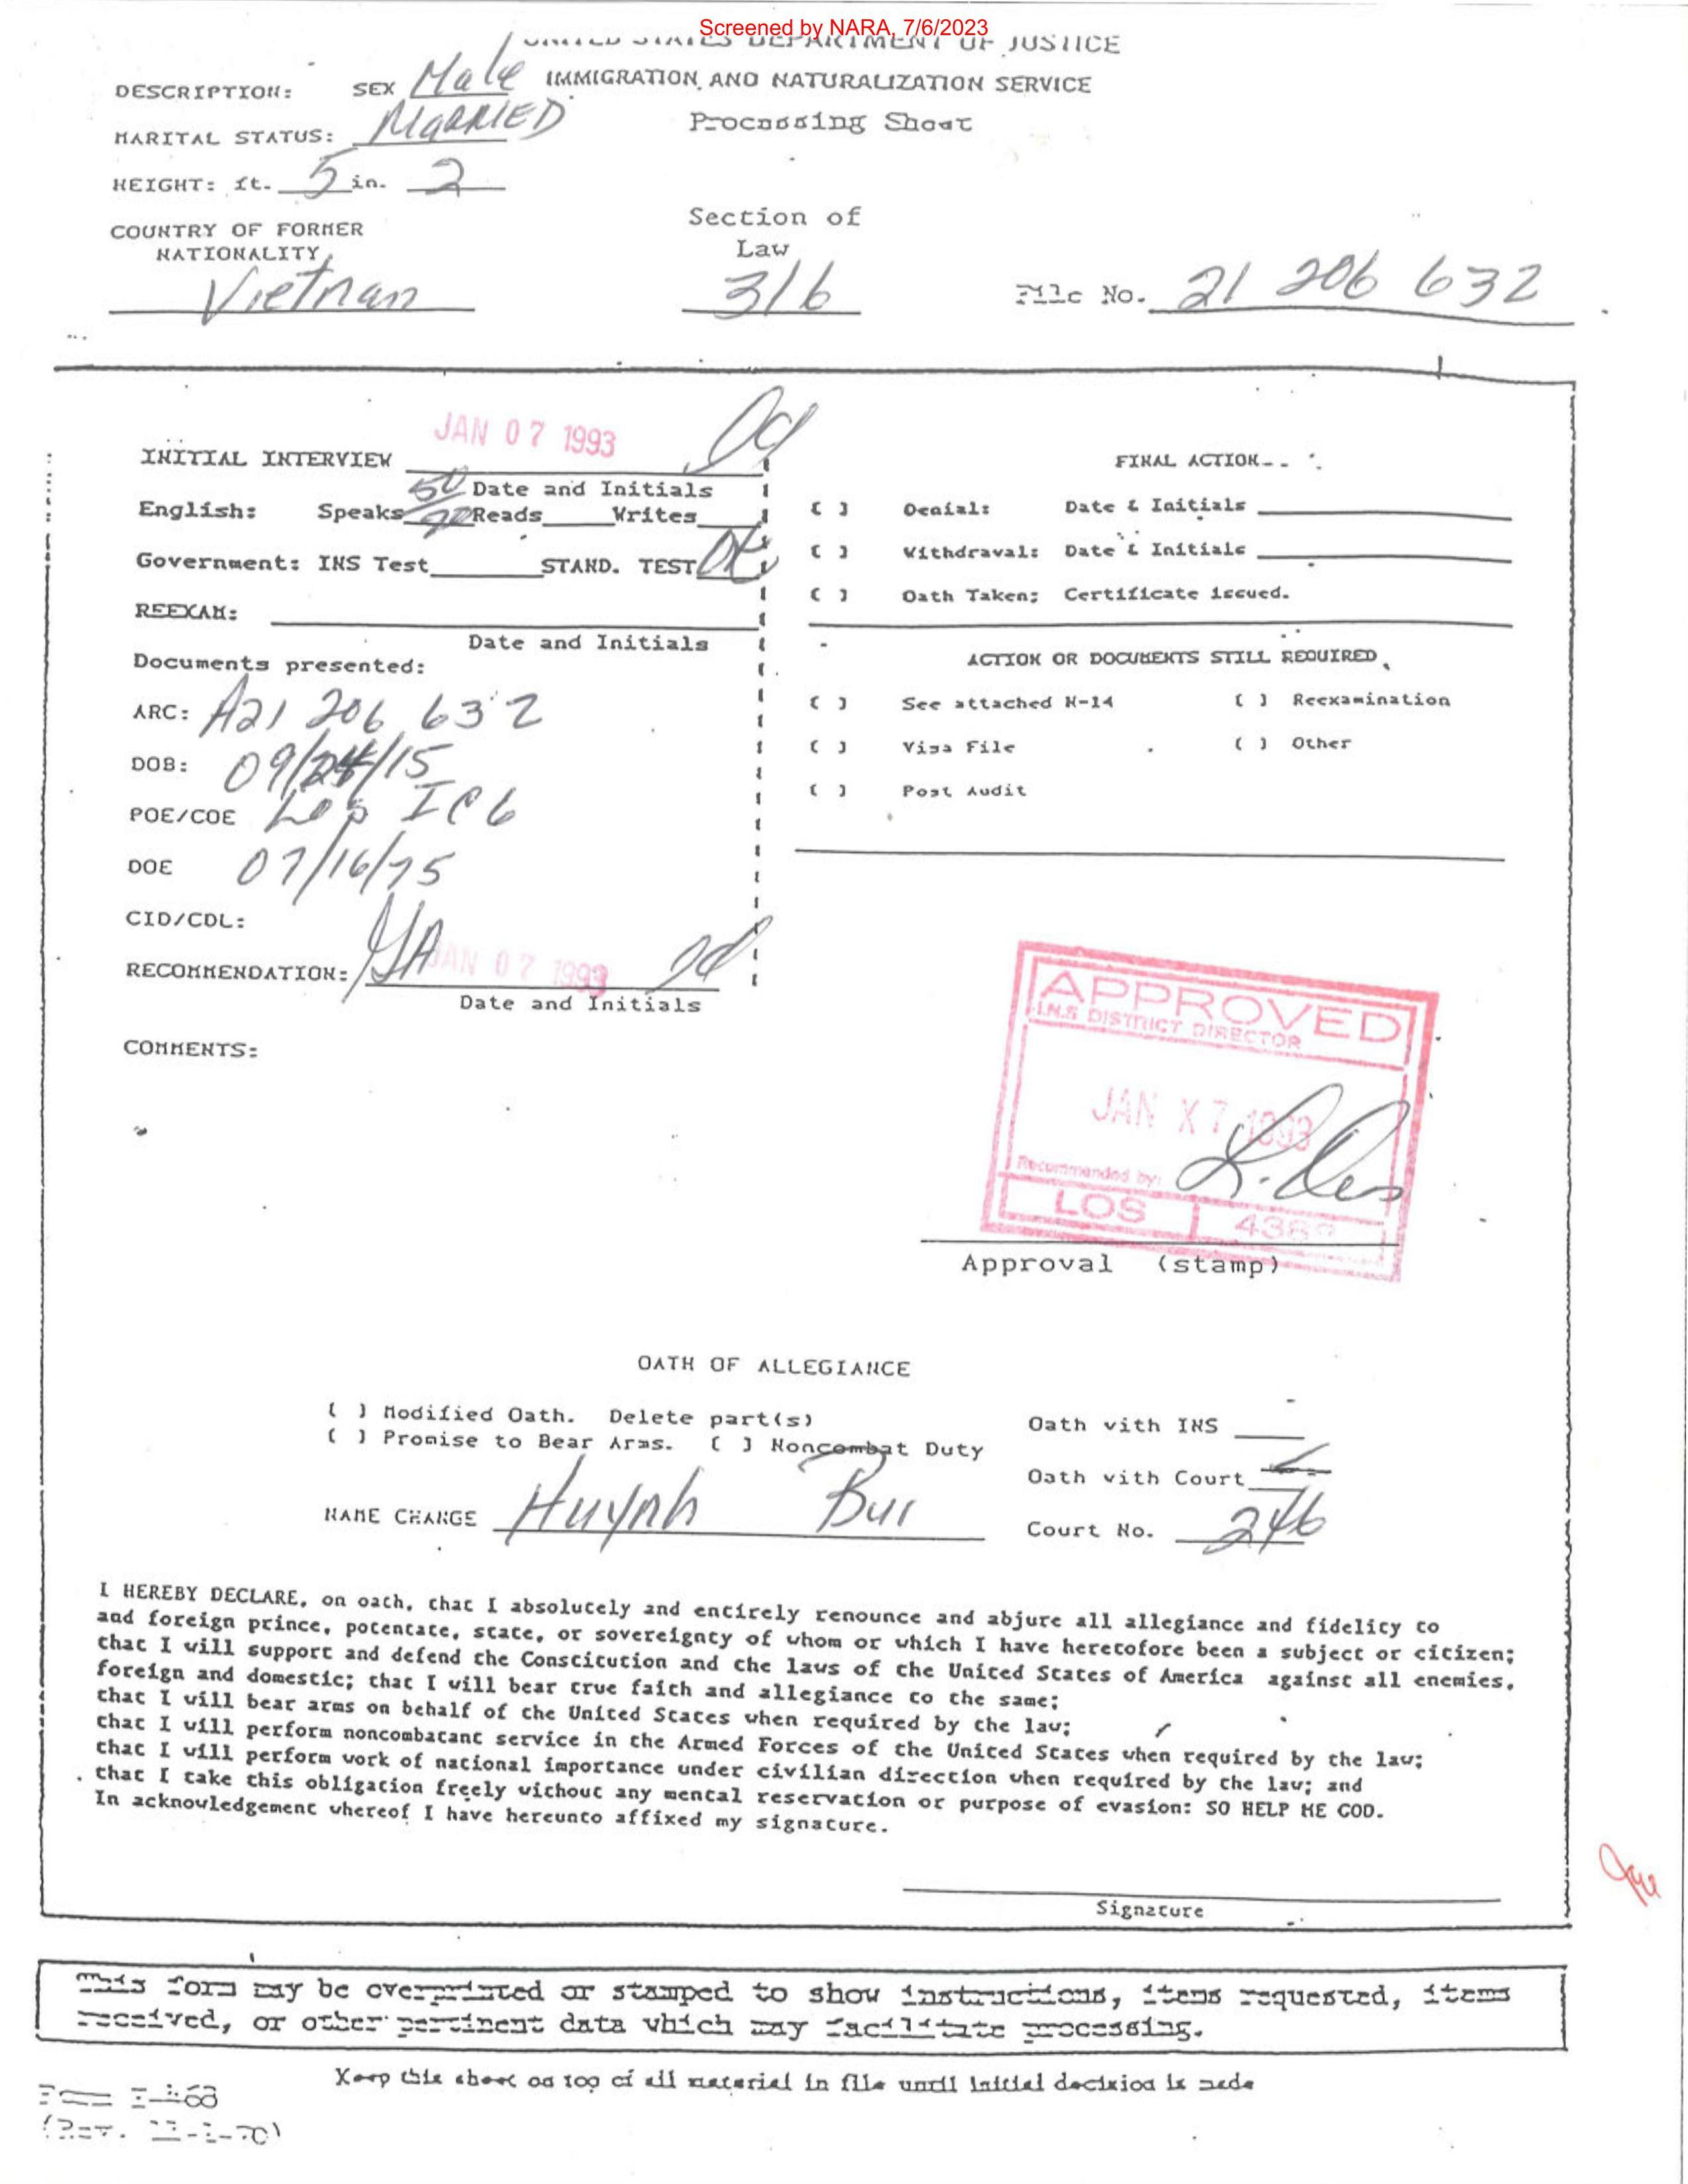 Screened by NARA, 7/6/2023
UNITED STATES DEPARTMENT OF JUSTICE
DESCRIPTION: SEX Male IMMIGRATION AND NATURALIZATION SERVICE
MARITAL STATUS: MARRIED Processing Sheet
HEIGHT: ft. 5 in. 2
COUNTRY OF FORMER NATIONALITY Vietnam
Section of Law 316
File No. 21 206 632
JAN 07 1993
INITIAL INTERVIEW
Date and Initials
English: Speaks Reads Writes
Government: INS Test STAND. TEST OK
REEXAM:
Date and Initials
Documents presented:
ARC: A21 206 632
DOB: 09/24/15
POE/COE Los IC6
DOE 07/16/75
CID/CDL:
RECOMMENDATION: JAN 07 1993
Date and Initials
COMMENTS:
FINAL ACTION
( ) Denial: Date & Initials
( ) Withdrawal: Date & Initials
( ) Oath Taken; Certificate issued.
ACTION OR DOCUMENTS STILL REQUIRED
( ) See attached N-14 ( ) Reexamination
( ) Visa File ( ) Other
( ) Post Audit
APPROVED
I.N.S DISTRICT DIRECTOR
JAN X7 1993
Recommended by:
LOS
Approval (stamp)
OATH OF ALLEGIANCE
( ) Modified Oath. Delete part(s)
( ) Promise to Bear Arms. ( ) Noncombat Duty
Oath with INS
Oath with Court
NAME CHANGE Huynh Bui
Court No. 246
I HEREBY DECLARE, on oath, that I absolutely and entirely renounce and abjure all allegiance and fidelity to
and foreign prince, potentate, state, or sovereignty of whom or which I have heretofore been a subject or citizen;
that I will support and defend the Constitution and the laws of the United States of America against all enemies,
foreign and domestic; that I will bear true faith and allegiance to the same;
that I will bear arms on behalf of the United States when required by the law;
that I will perform noncombatant service in the Armed Forces of the United States when required by the law;
that I will perform work of national importance under civilian direction when required by the law; and
that I take this obligation freely without any mental reservation or purpose of evasion: SO HELP ME GOD.
In acknowledgement whereof I have hereunto affixed my signature.
Signature
This form may be overprinted or stamped to show instructions, items requested, items
received, or other pertinent data which may facilitate processing.
Keep this sheet on top of all material in file until initial decision is made